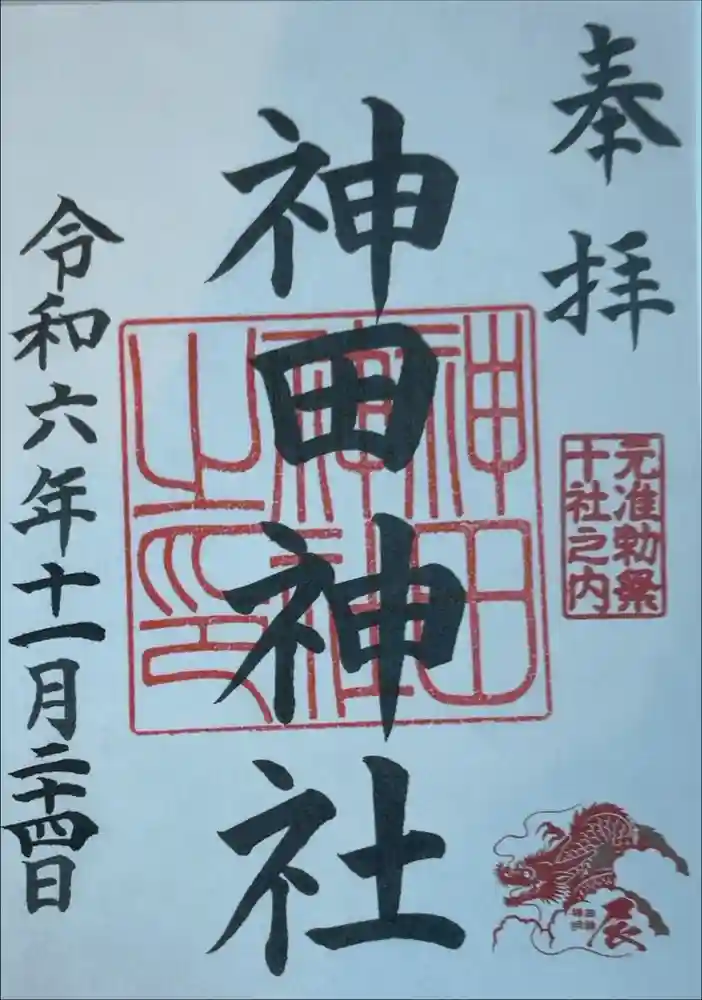 奉拝
元准勅祭
十社之内
神田神社
神田
神社
之印
辰
令和六年十一月二十四日